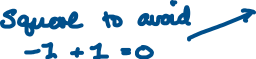 Square to avoid
-1 + 1 = 0